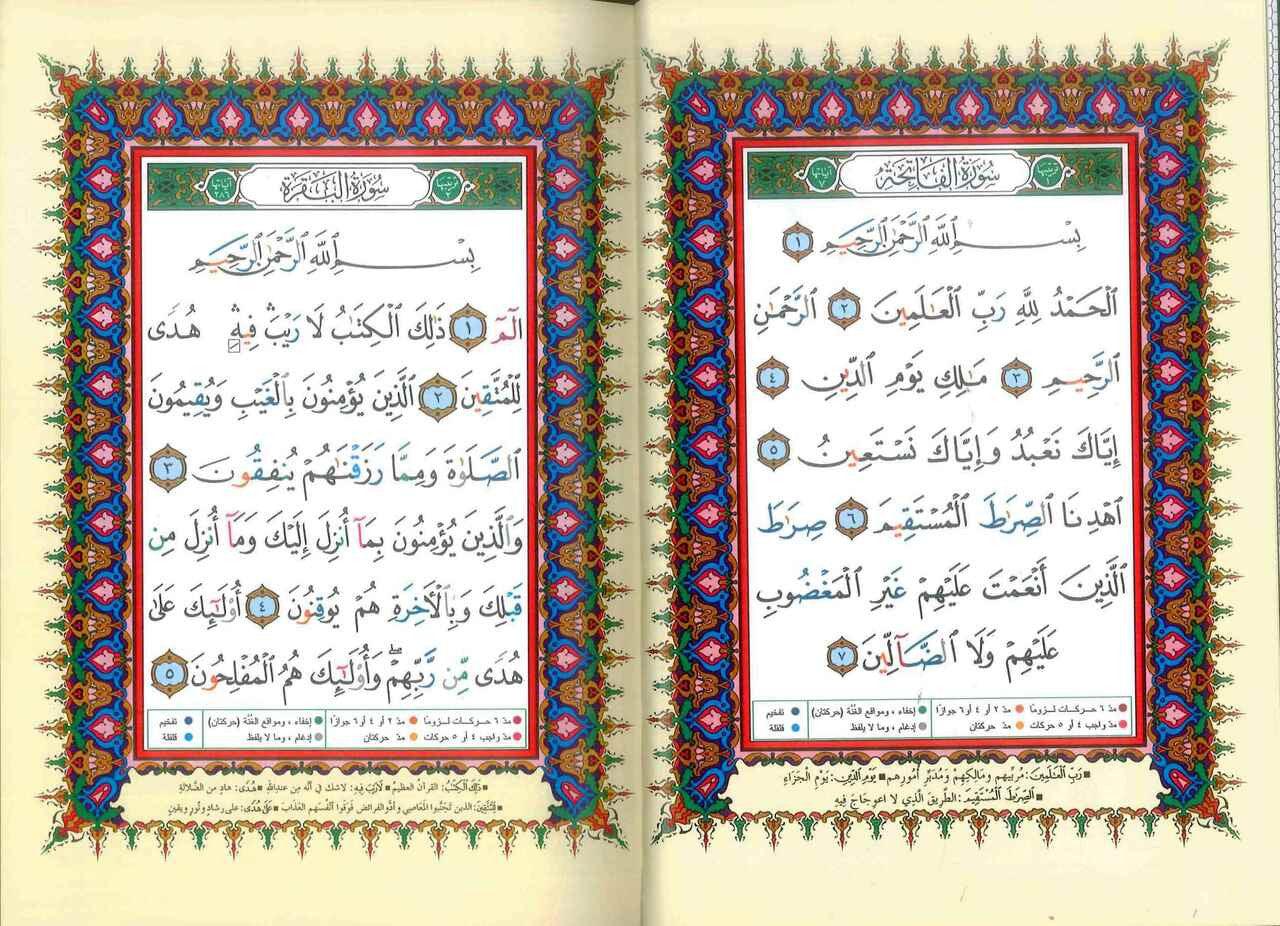 ترتيبها ١
سُورَةُ الْفَاتِحَةِ
آياتها ٧
بِسْمِ ٱللَّهِ ٱلرَّحْمَٰنِ ٱلرَّحِيمِ ١
ٱلْحَمْدُ لِلَّهِ رَبِّ ٱلْعَٰلَمِينَ ٢ ٱلرَّحْمَٰنِ
ٱلرَّحِيمِ ٣ مَٰلِكِ يَوْمِ ٱلدِّينِ ٤
إِيَّاكَ نَعْبُدُ وَإِيَّاكَ نَسْتَعِينُ ٥
ٱهْدِنَا ٱلصِّرَٰطَ ٱلْمُسْتَقِيمَ ٦ صِرَٰطَ
ٱلَّذِينَ أَنْعَمْتَ عَلَيْهِمْ غَيْرِ ٱلْمَغْضُوبِ
عَلَيْهِمْ وَلَا ٱلضَّآلِّينَ ٧
مدّ ٦ حركات لزومًا مدّ ٢ أو ٤ أو ٦ جوازًا إخفاء ، ومواقع الغُنَّة (حركتان) تفخيم
مدّ واجب ٤ أو ٥ حركات مدّ حركتان إدغام ، وما لا يلفظ قلقلة
رَبِّ ٱلْعَٰلَمِينَ: مُرَبِّيهِم وَمَالِكِهِمْ وَمُدَبِّرِ أُمُورِهِم يَوْمِ ٱلدِّينِ: يَوْمِ الْجَزَاءِ
ٱلصِّرَٰطَ ٱلْمُسْتَقِيمَ: الطَّرِيقَ الَّذِي لا اعوِجَاجَ فِيهِ
ترتيبها ٢
سُورَةُ الْبَقَرَةِ
آياتها ٢٨٦
بِسْمِ ٱللَّهِ ٱلرَّحْمَٰنِ ٱلرَّحِيمِ
الٓمٓ ١ ذَٰلِكَ ٱلْكِتَٰبُ لَا رَيْبَ ۛ فِيهِ ۛ هُدًى
لِّلْمُتَّقِينَ ٢ ٱلَّذِينَ يُؤْمِنُونَ بِٱلْغَيْبِ وَيُقِيمُونَ
ٱلصَّلَوٰةَ وَمِمَّا رَزَقْنَٰهُمْ يُنفِقُونَ ٣
وَٱلَّذِينَ يُؤْمِنُونَ بِمَآ أُنزِلَ إِلَيْكَ وَمَآ أُنزِلَ مِن
قَبْلِكَ وَبِٱلْأَخِرَةِ هُمْ يُوقِنُونَ ٤ أُو۟لَٰٓئِكَ عَلَىٰ
هُدًى مِّن رَّبِّهِمْ ۖ وَأُو۟لَٰٓئِكَ هُمُ ٱلْمُفْلِحُونَ ٥
مدّ ٦ حركات لزومًا مدّ ٢ أو ٤ أو ٦ جوازًا إخفاء ، ومواقع الغُنَّة (حركتان) تفخيم
مدّ واجب ٤ أو ٥ حركات مدّ حركتان إدغام ، وما لا يلفظ قلقلة
ذَٰلِكَ ٱلْكِتَٰبُ: القرآن العظيمُ لَا رَيْبَ فِيهِ: لاشك في أنّه من عندِ اللهِ هُدًى: هادٍ من الضَّلالةِ
لِلْمُتَّقِينَ: الذين تجنَّبُوا المَعَاصي وأدَّوا الفرائضَ فَوَقَوا أنفُسَهم العَذابَ عَلَىٰ هُدًى: على رشادٍ ونُورٍ ويقينٍ